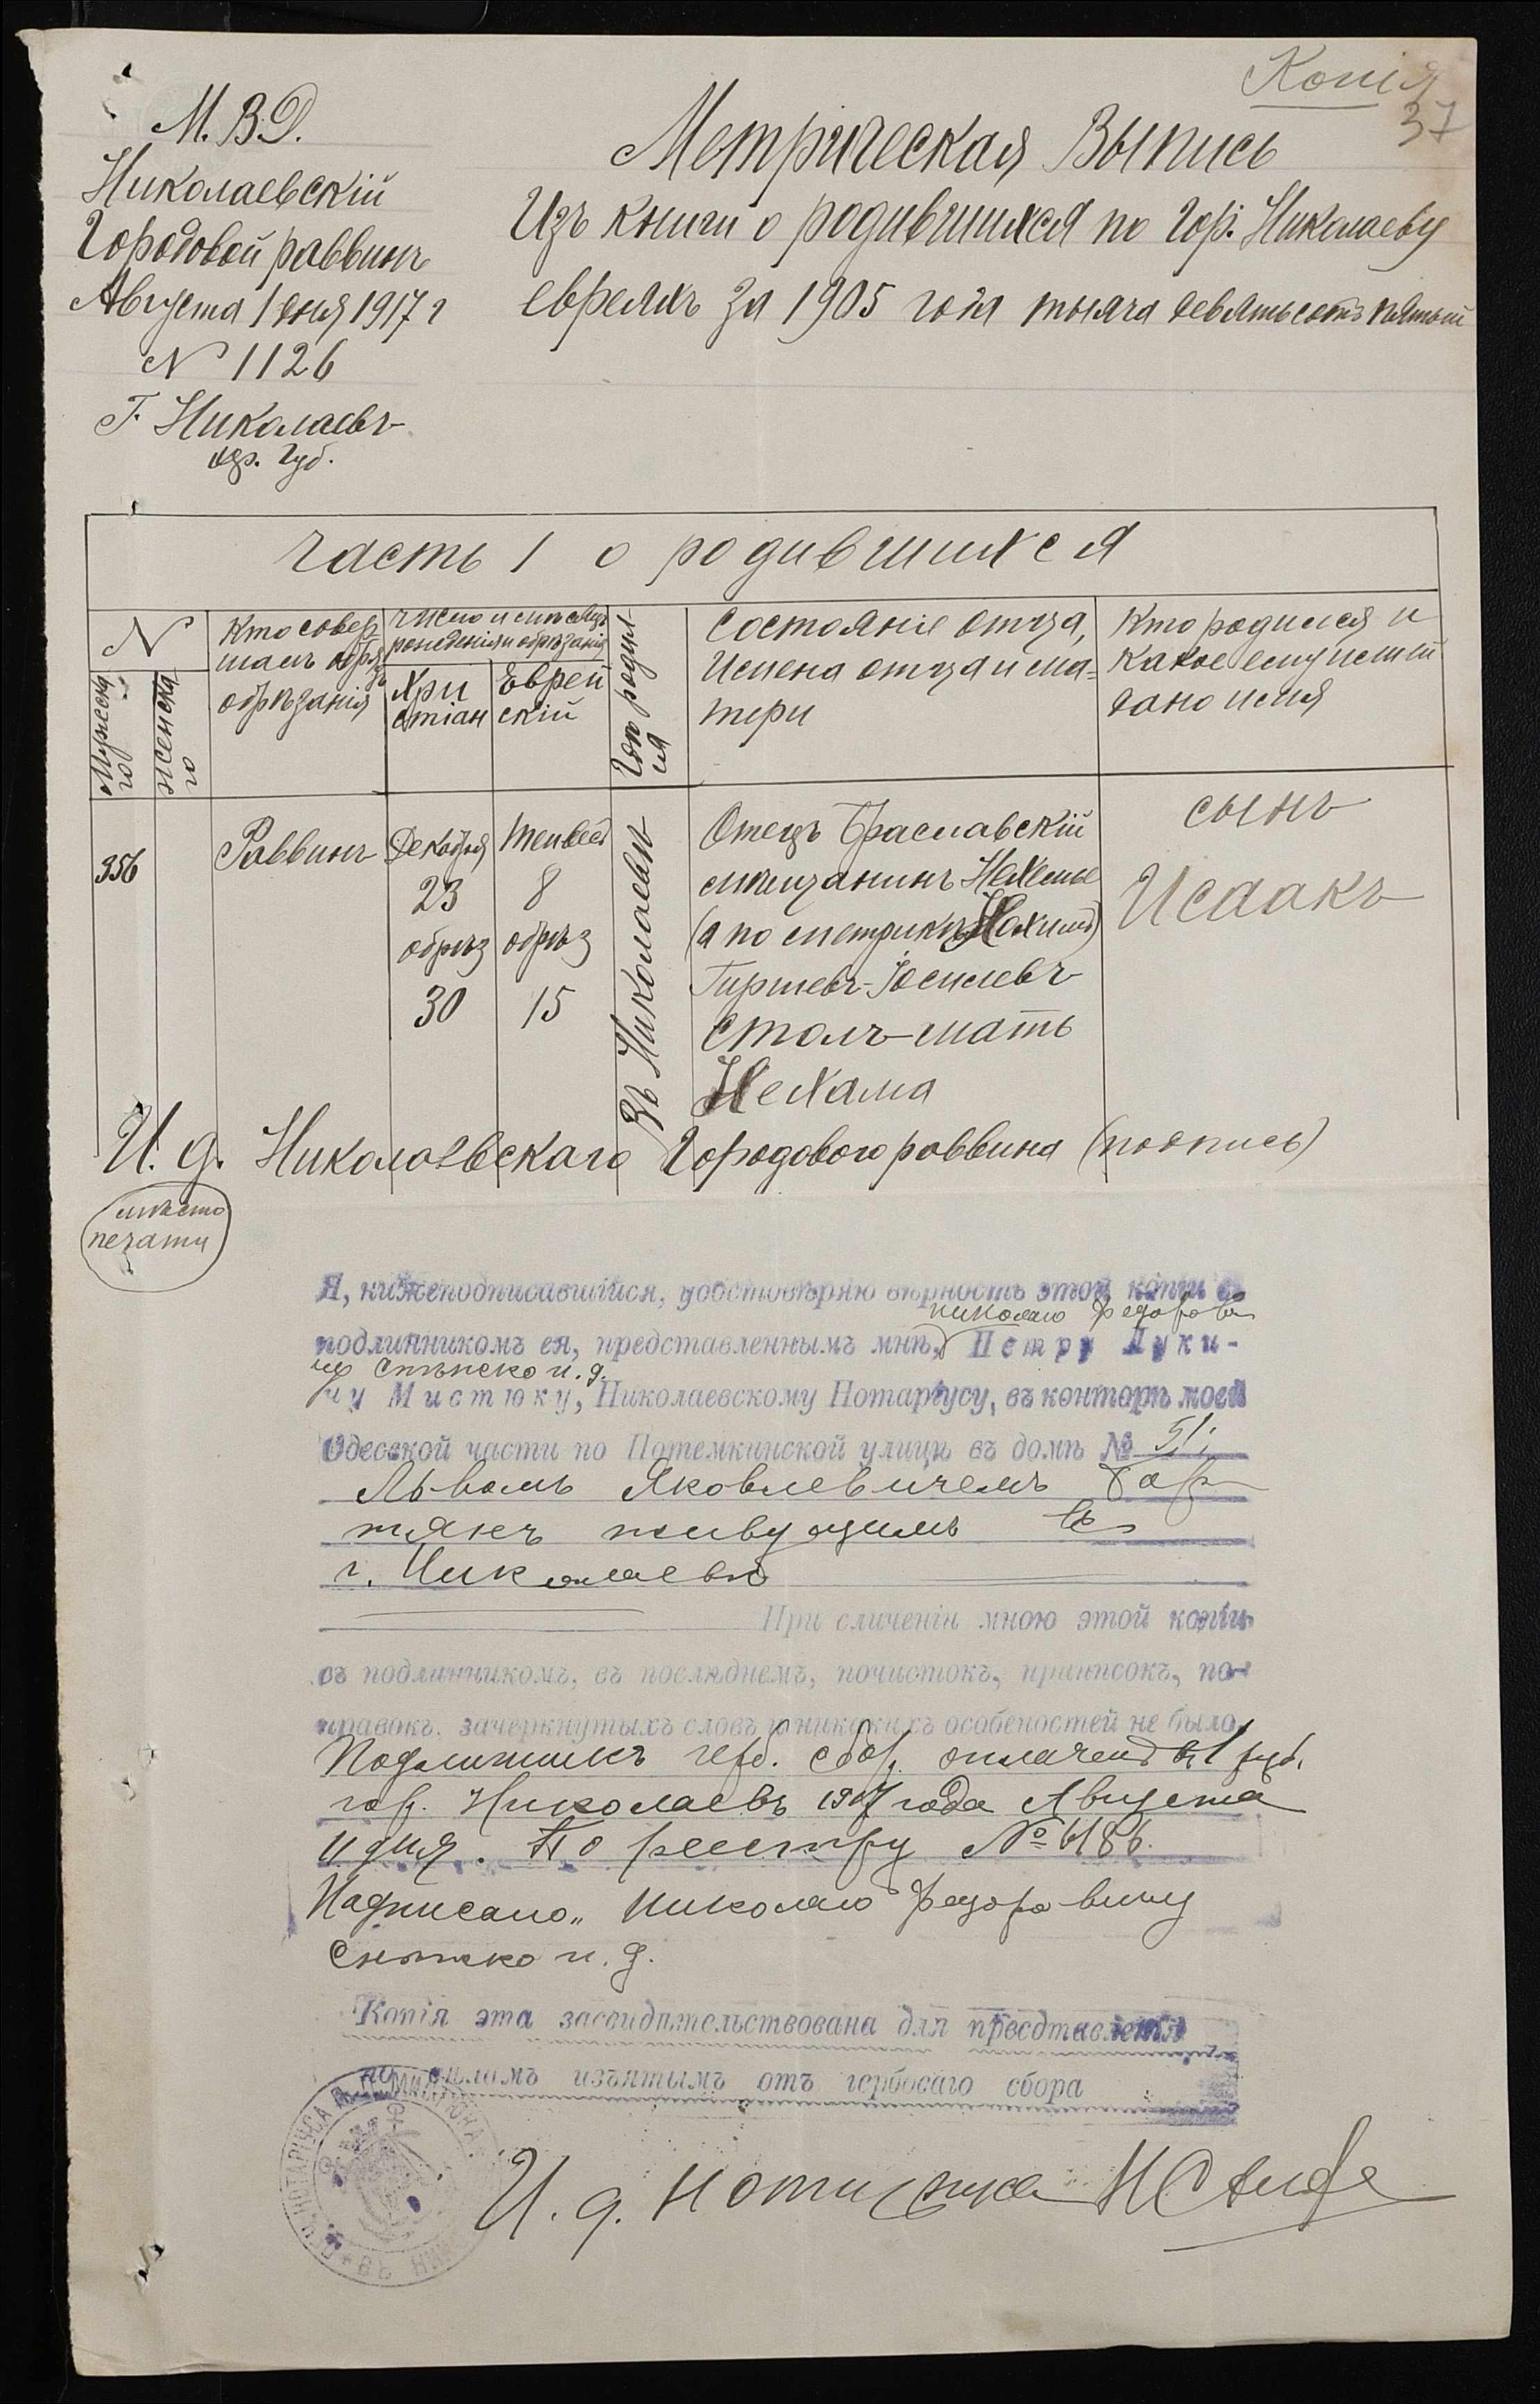 Копія
37
М. В. Д.
Николаевскій
Городовой раввинъ
Августа 1 дня 1917 г
N 1126
Г. Николаевъ
хер. губ.
Метрическая Выпись
Изъ книги о родившихся по гор. Николаеву
евреяхъ за 1905 года тысяча девятьсотъ пятый
Часть 1 о родившихся
N
Мужеска
го
женска
го
Кто совер
шалъ обря
дъ
обрѣзанія
Число и мѣсяцъ
рожденія и обрѣзанія
Хри
стіан
Еврей
скій
Гдѣ родил
ся
Состояніе отца,
Имена отца и ма-
тери
Кто родился и
какое ему или ей
дано имя
356
Раввинъ
Декабря
23
обрѣз
30
Тейвейс
8
обрѣз
15
Въ Николаевѣ
Отецъ Браславскій
мѣщанинъ Нехемье
(а по метрикѣ Нохимъ)
Гиршевъ-Іосилевъ
Столъ-мать
Нехама
сынъ
Исаакъ
И. д. Николаевскаго Городового раввина (подпись)
мѣсто
печати
Я, нижеподписавшійся, удостовѣряю вѣрность этой копіи съ
Николаю Федорови
подлинникомъ ея, представленнымъ мнѣ, Петру Луки-
чу и. д.
чу Мистюку, Николаевскому Нотаріусу, въ конторѣ моей
Одесской части по Потемкинской улицѣ въ домѣ № 51;
Львомъ Яковлевичемъ
живущимъ въ
г. Николаевѣ
При сличеніи мною этой копіи
съ подлинникомъ, въ послѣднемъ, почистокъ, приписокъ, по-
правокъ, зачеркнутыхъ словъ и никакихъ особеностей не было.
Подлинникъ герб. сбор. оплаченъ въ 1 руб.
гор. Николаевъ 1917 года Августа
дня. По реестру №
Надписано „ Николаю Федоровичу
и. д.
Копія эта засвидѣтельствована для представленія
по дѣламъ изъятымъ отъ гербоваго сбора
И. д. Нотаріуса